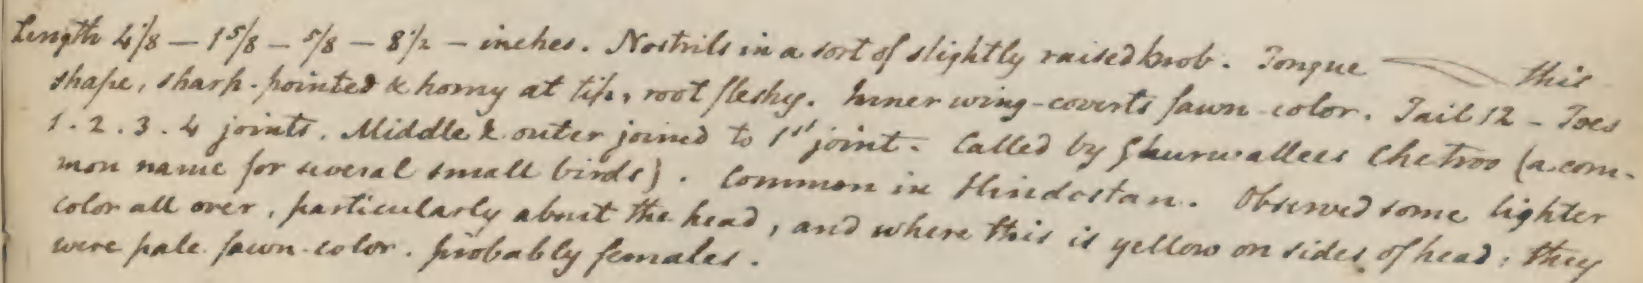 Length 4 1/8 — 1 5/8 — 5/8 — 8 1/2 — inches. Nostrils in a sort of slightly raised knob. Tongue this
shape, sharp-pointed & horny at tip, root fleshy. Inner wing-coverts fawn-color. Tail 12 - Toes
1. 2. 3. 4 joints. Middle & outer joined to 1st joint. Called by Ghurwallees Chetroo (a com-
mon name for several small birds). Common in Hindostan. Observed some lighter
color all over, particularly about the head, and where this is yellow on sides of head; they
were pale fawn-color. probably females.